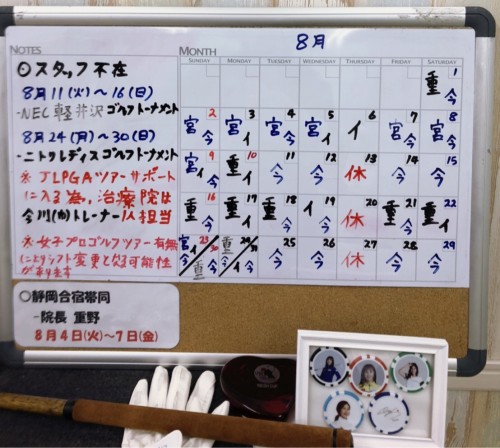 8月
NOTES
◎スタッフ不在
8月11(火)〜16(日)
-NEC軽井沢ゴルフトーナメント
8月24(月)〜30(日)
-ニトリレディスゴルフトーナメント
※JLPGAツアーサポート
に入る為、治療院は
今川(か)トレーナー1人担当
※女子プロゴルフツアー有無
によりシフト変更となる可能性
があります
○静岡合宿帯同
-院長 重野
8月4日(火)〜7日(金)
MONTH
SUNDAY MONDAY TUESDAY WEDNESDAY THURSDAY FRIDAY SATURDAY
1
重 今
2 3 4 5 6 7 8
宮 今 宮 イ 宮 今 宮 イ イ 宮 今 宮 今
9 10 11 12 13 14 15
宮 イ 重 イ 今 今 休 今 今
16 17 18 19 20 21 22
重 今 重 イ 重 イ イ 今 休 重 今 重 イ
23 30 24 31 25 26 27 28 29
宮 イ 重 今 重 今 イ 今 今 休 今 今